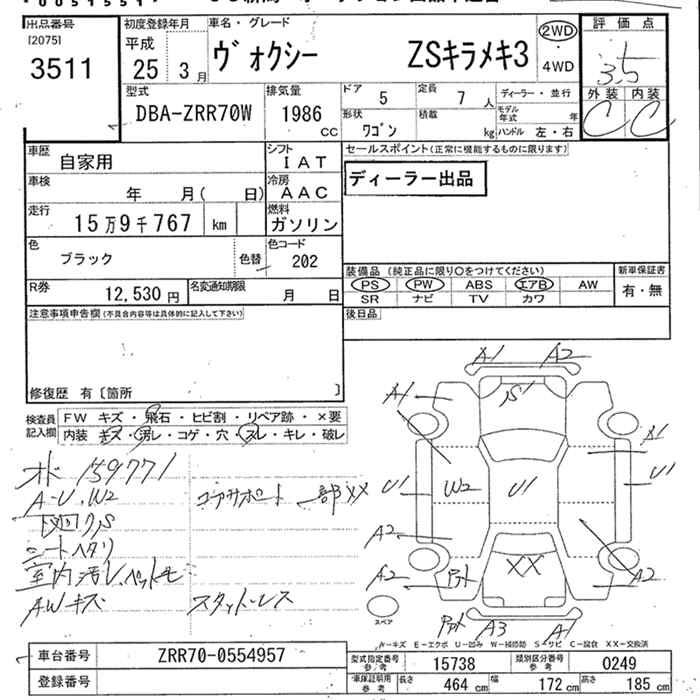 出品番号
[2075]
3511
初度登録年月
平成
25 3月
車名・グレード
ヴォクシー ZSキラメキ3
2WD
・
4WD
評価点
3.5
外装 内装
C C
型式
DBA-ZRR70W
排気量
1986
cc
ドア 5
定員 7人
ディーラー・並行
モデル年式 年
形状 ワゴン
積載 kg
ハンドル 左・右
車歴 自家用
シフト IAT
セールスポイント(正常に機能するものに限ります)
ディーラー出品
車検 年 月( 日)
冷房 AAC
走行 15万9千767 km
燃料 ガソリン
色 ブラック 色替
色コード 202
装備品(純正品に限り○をつけてください) 新車保証書
PS PW ABS エアB AW 有・無
SR ナビ TV カワ
R券 12,530円
名変通知期限 月 日
後日品
注意事項申告欄(不具合内容等は具体的に記入して下さい)
修復歴 有〔箇所 〕
検査員記入欄
FW キズ・飛石・ヒビ割・リペア跡・×要
内装 キズ・汚レ・コゲ・穴・スレ・キレ・破レ
オド 159771
A-U, W2
コアサポート 一部XX
シートヘタリ
室内汚レ
AWキズ スタッドレス
A1 A2
A1 S1
A1
U1 W2 U1 U1
A2
A2 XX A2
A3 A1
スペア
A-キズ E-エクボ U-凹み W-補修跡 S-サビ C-腐食 XX-交換済
車台番号 ZRR70-0554957
登録番号
型式指定番号参考 15738
類別区分番号参考 0249
車保証明用参考 長さ 464cm 幅 172cm 高さ 185cm